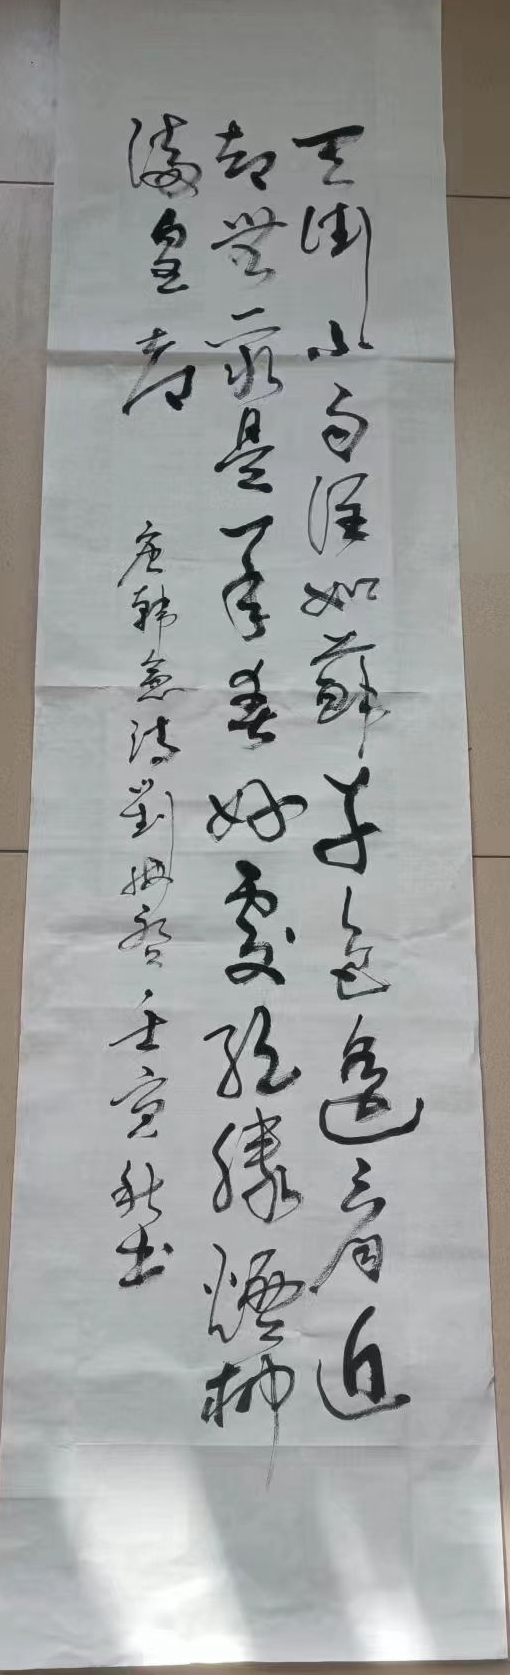 天街小雨潤如蘇草色遙看近
却無最是一年春好處絕勝煙柳
滿皇都
唐韓愈詩劉壬寅秋書